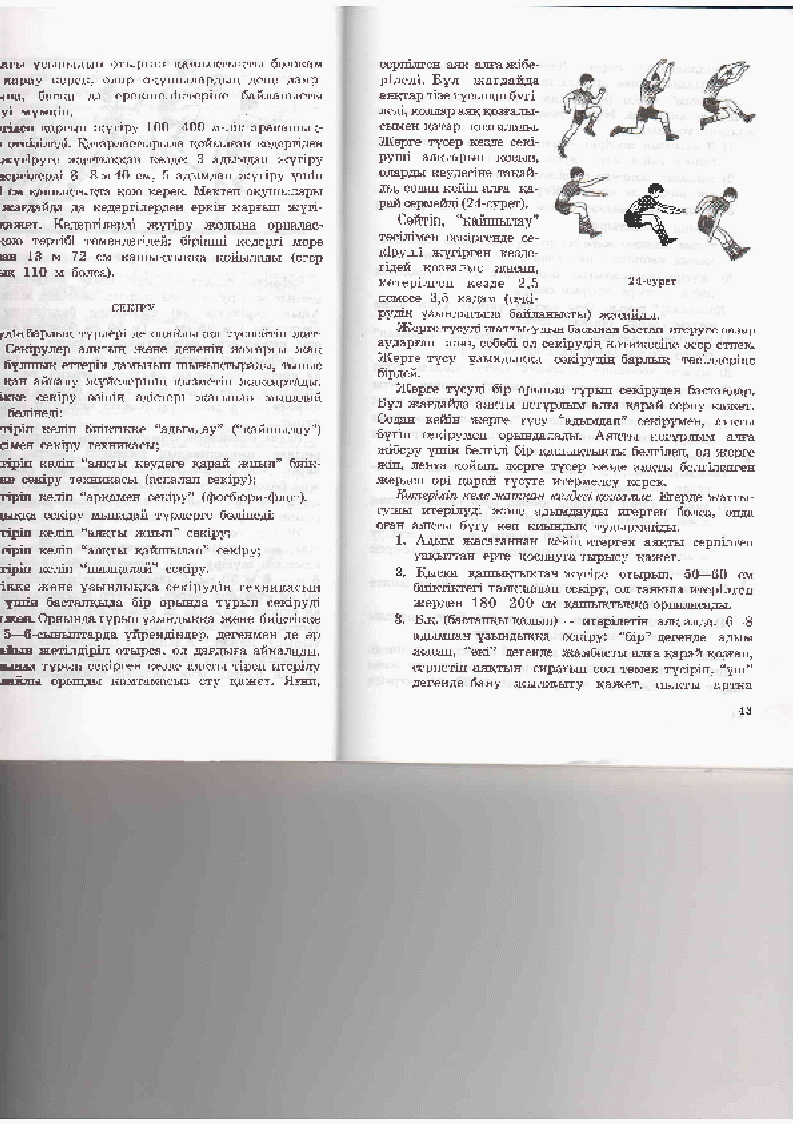 қарау керек, олар оқушылардың дене дамы-
уі мүмкін.
қарғып жүгіру 100–400 метр аралығын-
өткізіледі. Қатарластырыла қойылған кедергіден
жүгіруге жаттыққан кезде: 3 адымдап жүгіру
кедергілерді 8–8 м 40 см, 5 адымдап жүгіру үшін
см қашықтықта қою керек. Мектеп оқушылары
жағдайда да кедергілерден еркін қарғып жүгі-
қажет. Кедергілерді жүгіру жолына орналас-
қою тәртібі төмендегідей: бірінші кедергі мәре
13 м 72 см қашықтыққа қойылады (егер
110 м болса).
СЕКІРУ
Секірулер аяқтың және дененің жоғарғы жақ
бұлшық еттерін дамытып шынықтырады, тыныс
қан айналу жүйелерінің қызметін жақсартады.
секіру өзінің әдістері жағынан мынадай
бөлінеді:
келіп биіктікке “адымдау” (“қайшылау”)
секіру техникасы;
келіп “аяқты кеудеге қарай жиып” биік-
секіру техникасы (покапал секіру);
келіп “арқамен секіру” (фосбюри-флоп).
секіру мынадай түрлерге бөлінеді:
келіп “аяқты жиып” секіру;
келіп “аяқты қайшылап” секіру;
келіп “шалқалай” секіру.
және ұзындыққа секірудің техникасын
үшін бастапқыда бір орында тұрып секіруді
Орнында тұрып ұзындыққа және биіктікке
5—6-сыныптарда үйрендіңдер, дегенмен де әр
жетілдіріп отырса, ол дағдыға айналады.
тұрып секірген кезде аяқты тіреп итерілу
орынды қамтамасыз ету қажет. Яғни,
серпілген аяқ алға жібе-
ріледі. Бұл жағдайда
аяқтар тізе тұсынан бүгі-
леді, қолдар аяқ қозғалы-
сымен қатар қозғалады.
Жерге түсер кезде секі-
руші аяқтарын қосып,
оларды кеудесіне тақай-
ды, содан кейін алға қа-
рай сермейді (24-сурет).
Сөйтіп, “қайшылау”
тәсілімен секіргенде се-
кіруші жүгірген кезде-
гідей қозғалыс жасап,
көтерілген кезде 2,5
немесе 3,5 қадам (секі-
рудің ұзындығына байланысты) жасайды.
24-сурет
Жерге түсуді жаттығудың басынан бастап игеруге назар
аударған жөн, себебі ол секірудің нәтижесіне әсер етпек.
Жерге түсу ұзындыққа секірудің барлық тәсілдеріне
бірдей.
Жерге түсуді бір орында тұрып секіруден бастаңдар.
Бұл жағдайда аяқты неғұрлым алға қарай серпу қажет.
Содан кейін жерге түсу “адымдап” секірумен, аяқты
бүгіп секірумен орындалады. Аяқты неғұрлым алға
жіберу үшін белгілі бір қашықтықты белгілеп, ол жерге
жіп, лента қойып, жерге түсер кезде аяқты белгіленген
жерден әрі қарай түсуге итермелеу керек.
Көтеріліп келе жатқан кездегі қозғалыс. Егерде жатты-
ғушы итерілуді және адымдауды игерген болса, онда
оған аяқты бүгу көп қиындық тудырмайды.
1. Адым жасағаннан кейін итерген аяқты серпілген
уақыттан ерте қосылуға тырысу қажет.
2. Қысқа қашықтықтан жүгіре отырып, 50—60 см
биіктіктегі талқышадан секіру, ол тақтаға итерілген
жерден 180–200 см қашықтыққа орналасады.
3. Б.қ. (бастапқы қалып) — итерілетін аяқ алда. 6–8
адымнан ұзындыққа секіру: “бір” дегенде адым
жасап, “екі” дегенде жамбасты алға қарай қозғап,
серпетін аяқтың сирағын сәл төмен түсіріп, “үш”
дегенде бану жылжыту қажет, аяқты артқа
43